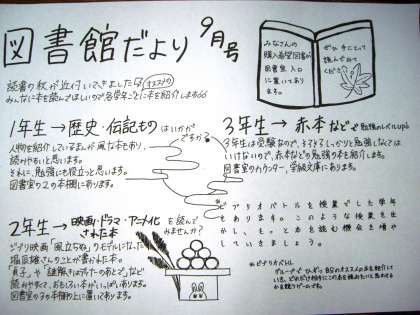 図書館だより 9月号
読書の秋が近付いてきましたね
オススメの
みんなに本を読んでほしいので各学年ごとに本を紹介します
みなさんの
購入希望図書が
図書室入口
に置いてあり
ます。
ぜひ手にとって
読んでみて
ください
1年生→歴史・伝記もの はいかが
ですか
人物を紹介していますが風な本もあり、
読みやすいと思います。
それに、勉強にも役立つと思います。
図書室の2の本棚にあります。
2年生→映画・ドラマ・アニメ化
された本
を読んで
みませんか?
ジブリ映画「風立ちぬ」のモデルになった
堀辰雄さんのことが書かれた本。
「貞子」や「謎解きはディナーのあとで」など
読みやすくて、おもしろい本がいっぱいあります。
3年生→赤本などで 勉強のレベルup
3年生は受験なので、そろそろしっかりと勉強しなくては
いけないので、赤本などの勉強の本も紹介します。
図書室のカウンター、学級文庫にあります。
ビブリオバトルを授業でした学年
もあります。このような授業を生
かし、もっと本を読む機会を増や
していきましょう。
※ビブリオバトル